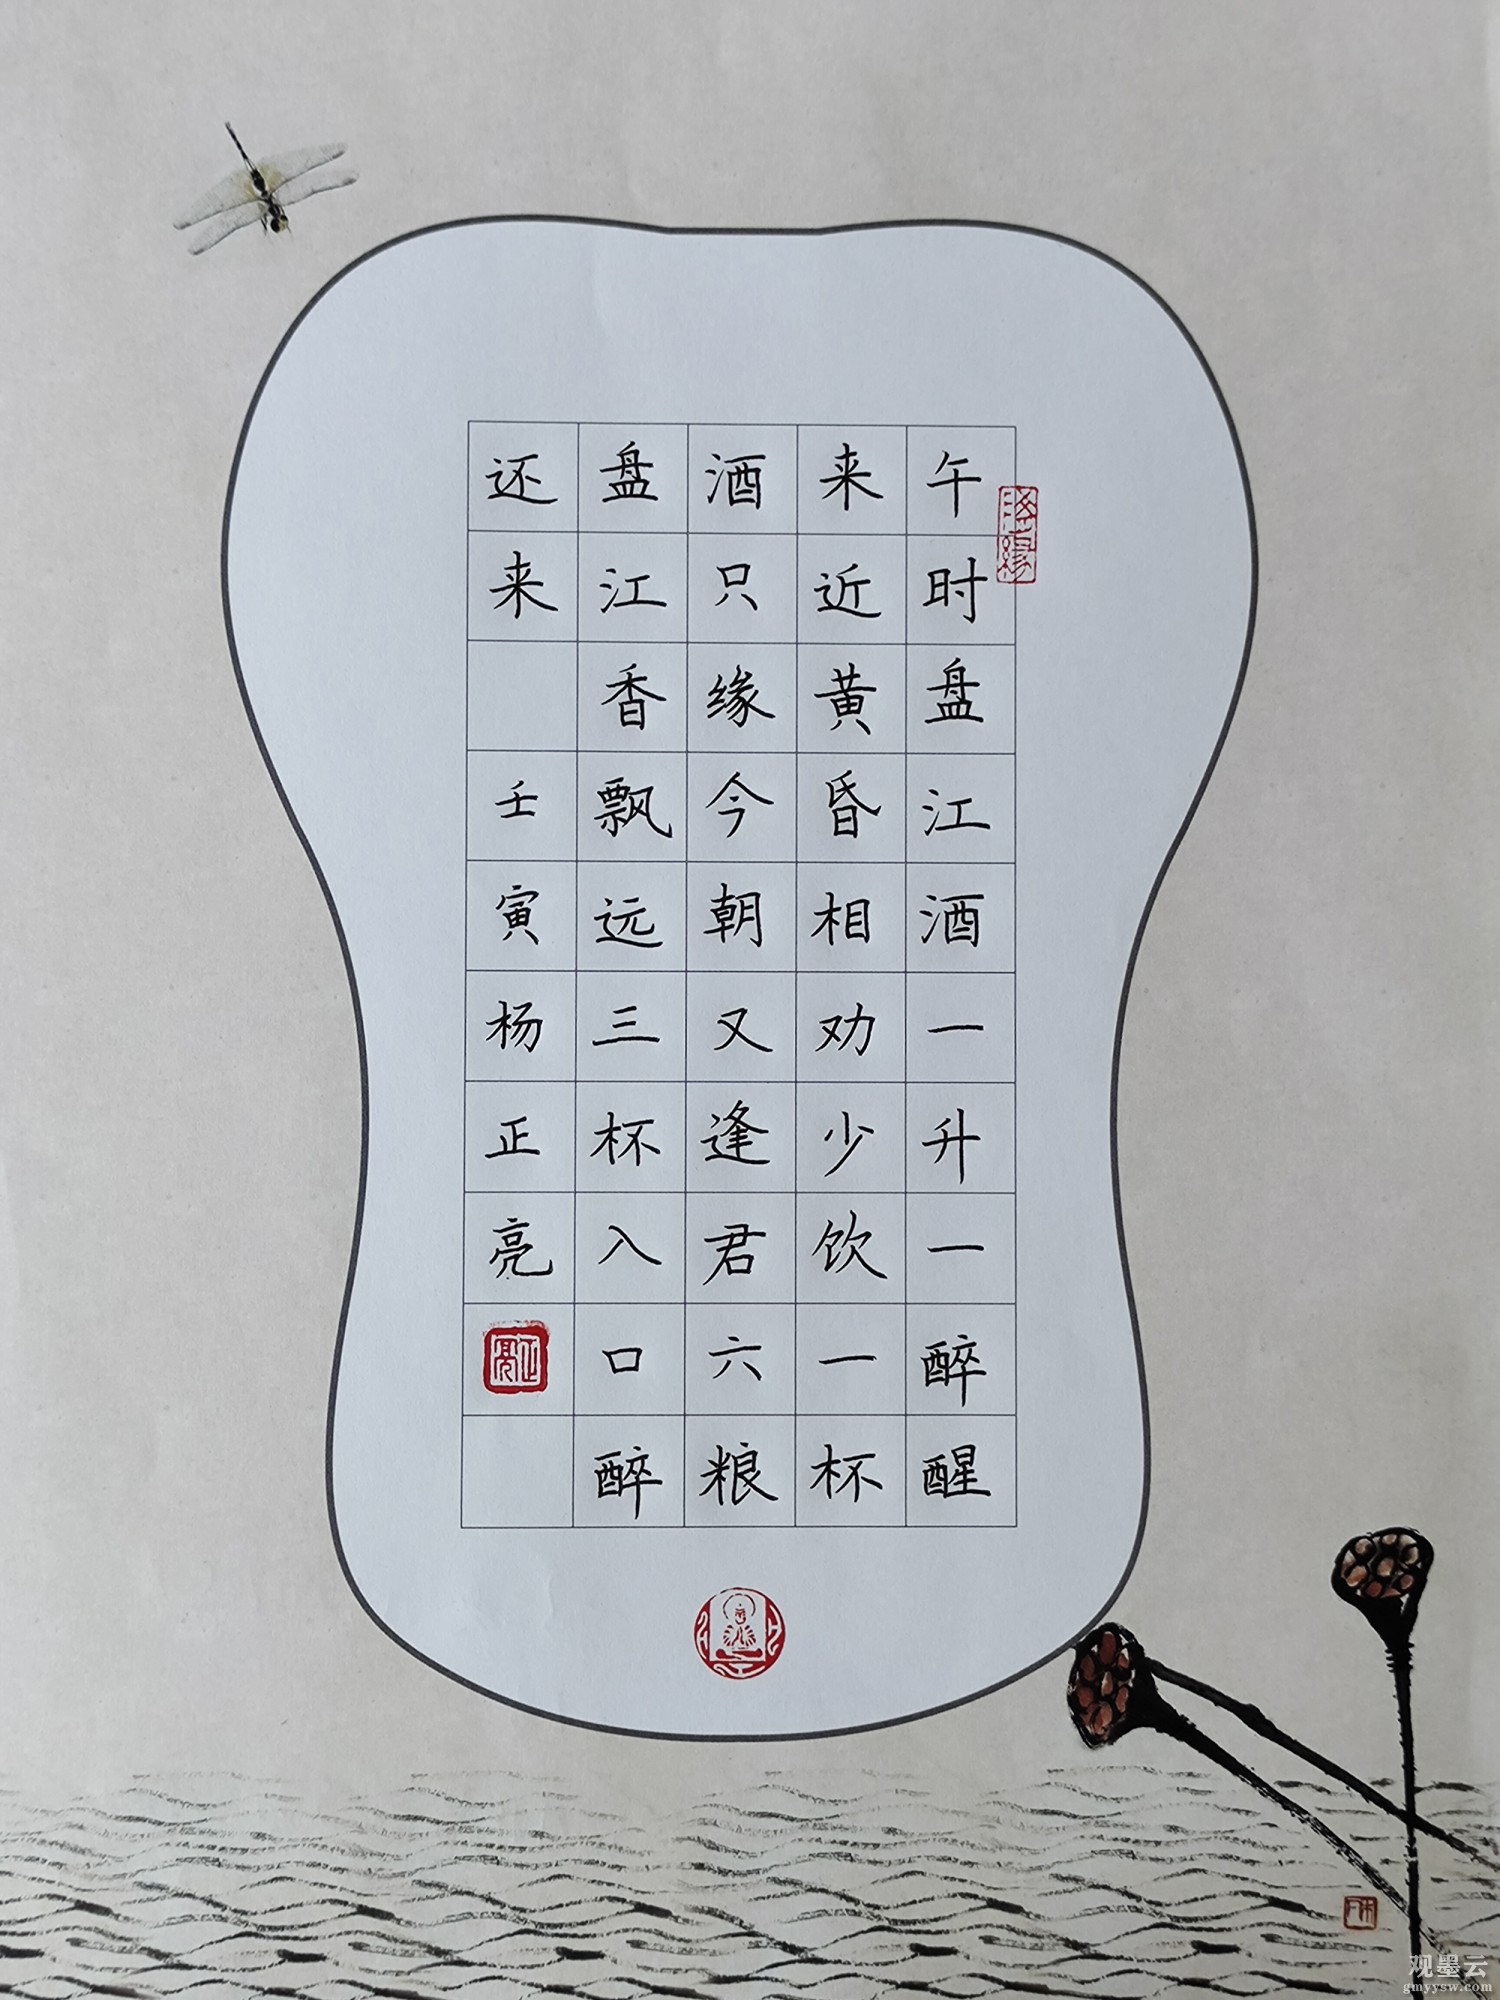 午时盘江酒一升一醉醒
来近黄昏相劝少饮一杯
酒只缘今朝又逢君六粮
盘江香飘远三杯入口醉
还来 壬寅杨正亮
随缘
正亮
观墨云
gmyysw.com